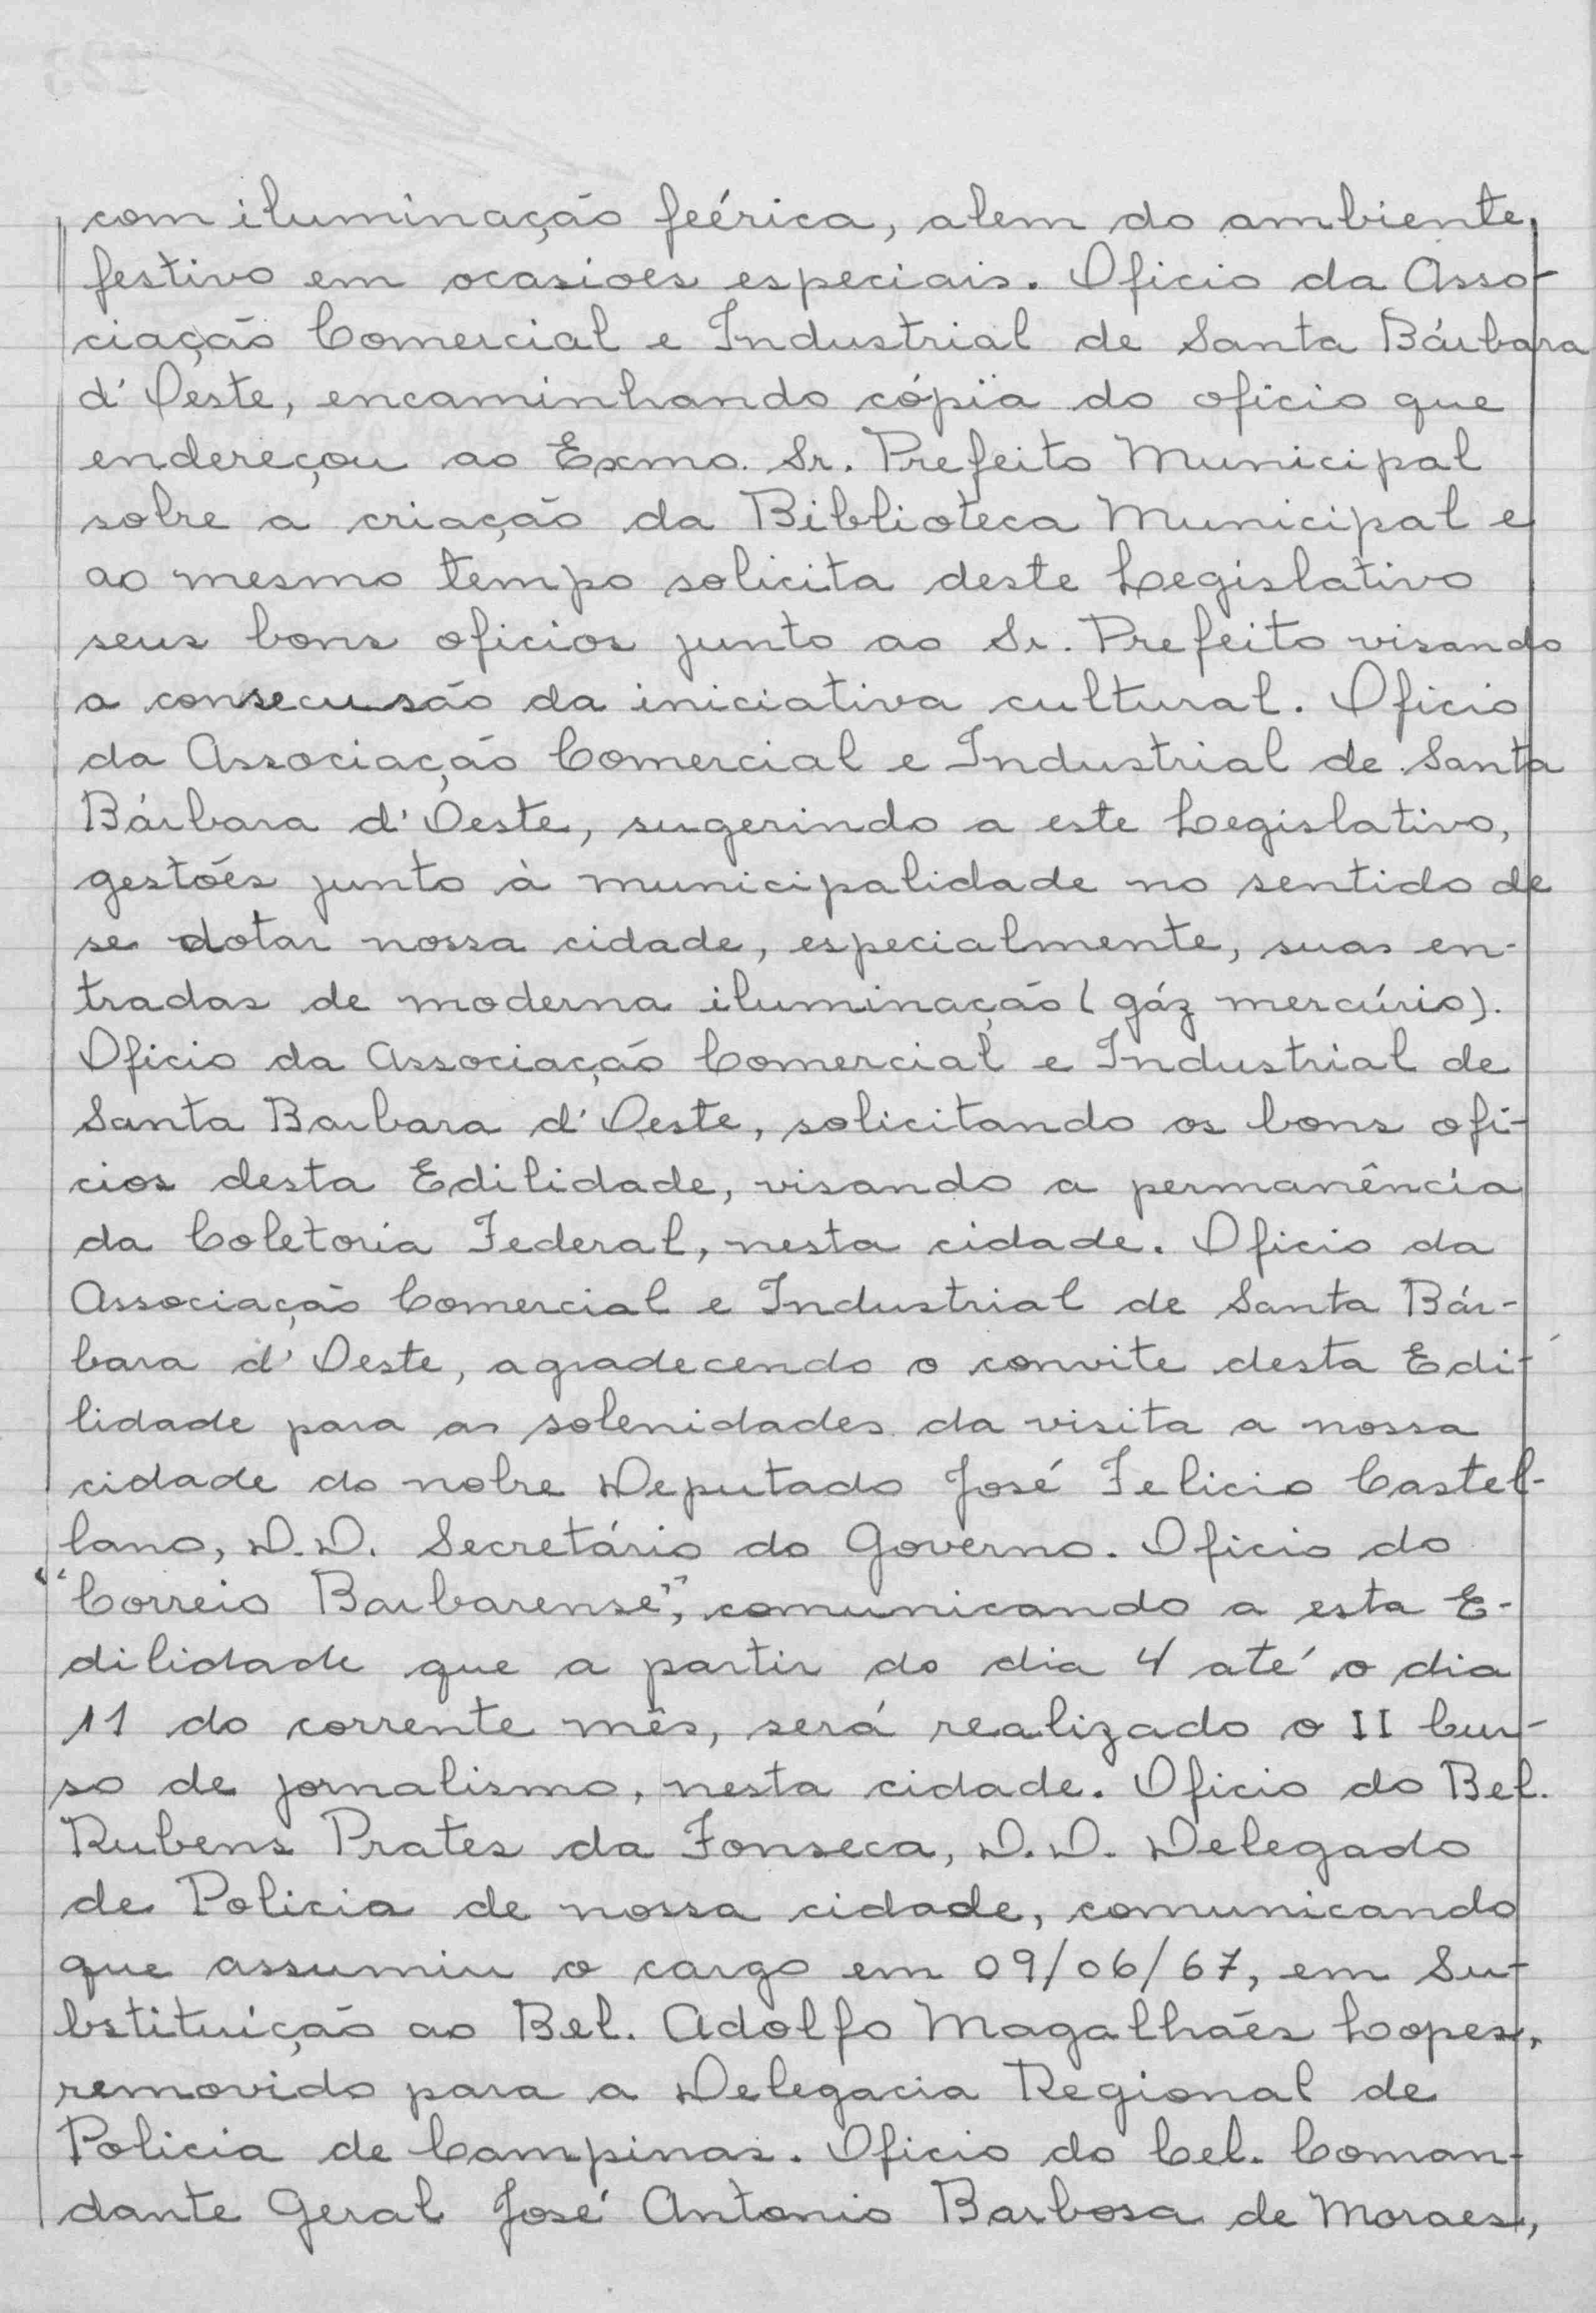 com iluminação feérica, alem do ambiente
festivo em ocasioes especiais. Oficio da Asso-
ciação Comercial e Industrial de Santa Bárbara
d'Oeste, encaminhando cópia do oficio que
endereçou ao Exmo. Sr. Prefeito Municipal
sobre a criação da Biblioteca Municipal e
ao mesmo tempo solicita deste Legislativo
seus bons oficios junto ao Sr. Prefeito visando
a consecusão da iniciativa cultural. Oficio
da Associação Comercial e Industrial de Santa
Bárbara d'Oeste, sugerindo a este Legislativo,
gestões junto à municipalidade no sentido de
se dotar nossa cidade, especialmente, suas en-
tradas de moderna iluminação (gáz mercúrio).
Oficio da Associação Comercial e Industrial de
Santa Barbara d'Oeste, solicitando os bons ofi-
cios desta Edilidade, visando a permanência
da Coletoria Federal, nesta cidade. Oficio da
Associação Comercial e Industrial de Santa Bár-
bara d'Oeste, agradecendo o convite desta Edi-
lidade para as solenidades da visita a nossa
cidade do nobre Deputado José Felicio Castel-
lano, D.D. Secretário do Governo. Oficio do
"Correio Barbarense", comunicando a esta E-
dilidade que a partir do dia 4 até o dia
11 do corrente mês, será realizado o II Cur-
so de jornalismo, nesta cidade. Oficio do Bel.
Rubens Prates da Fonseca, D.D. Delegado
de Policia de nossa cidade, comunicando
que assumiu o cargo em 09/06/67, em Su-
bstituição ao Bel. Adolfo Magalhães Lopes,
removido para a Delegacia Regional de
Policia de Campinas. Oficio do Cel. Coman-
dante Geral José Antonio Barbosa de Moraes,